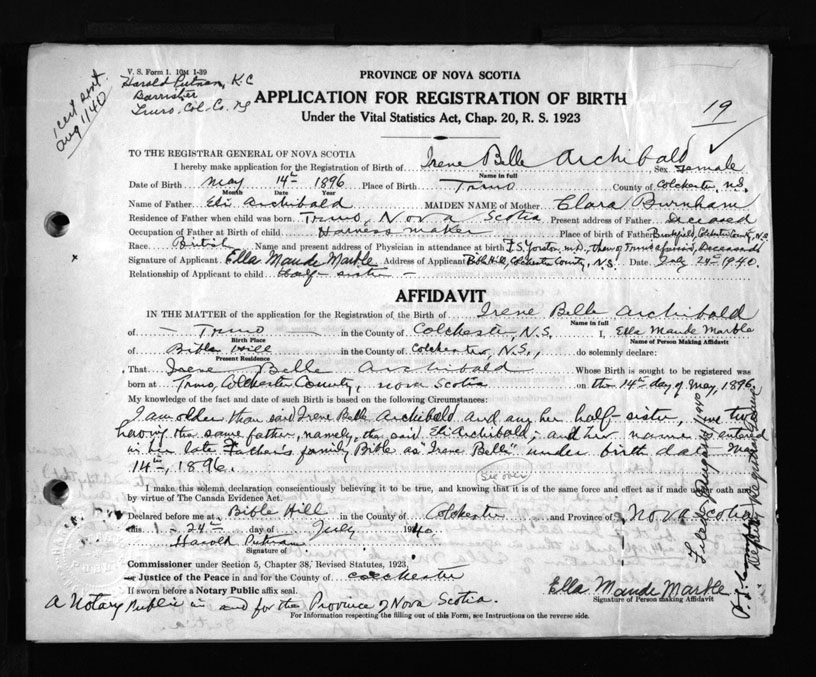 V. S. Form 1. 10M 1-39
Harold Putnam, K.C
Barrister
Truro, Col. Co. NS
1 cert sent.
Aug 1/40
19
PROVINCE OF NOVA SCOTIA
APPLICATION FOR REGISTRATION OF BIRTH
Under the Vital Statistics Act, Chap. 20, R. S. 1923
TO THE REGISTRAR GENERAL OF NOVA SCOTIA
I hereby make application for the Registration of Birth of Irene Belle Archibald Sex Female
Name in full
Date of Birth May 14th 1896 Place of Birth Truro County of Colchester N.S.
Month Date Year
Name of Father Eli Archibald MAIDEN NAME of Mother Clara Burnham
Residence of Father when child was born Truro, Nova Scotia Present address of Father Deceased
Occupation of Father at Birth of child Harness maker Place of birth of Father Brookfield, Colchester County, N.S.
Race British Name and present address of Physician in attendance at birth Yorston, M.D., then of Truro aforesaid, Deceased
Signature of Applicant Ella Maude Marble Address of Applicant Bible Hill, Colchester County, N.S. Date July 24th 1940.
Relationship of Applicant to child Half-sister
AFFIDAVIT
IN THE MATTER of the application for the Registration of the Birth of Irene Belle Archibald
Name in full
of Truro in the County of Colchester, N.S. I, Ella Maude Marble
Birth Place Name of Person Making Affidavit
of Bible Hill in the County of Colchester, N.S., do solemnly declare:
Present Residence
That Irene Belle Archibald Whose Birth is sought to be registered was
born at Truro, Colchester County, Nova Scotia on the 14th day of May, 1896.
My knowledge of the fact and date of such Birth is based on the following Circumstances:
I am older than said Irene Belle Archibald and am her half-sister, we two
having the same father, namely, the said Eli Archibald; and her name is entered
in her late Father's family Bible as "Irene Belle" under birth date May
14th, 1896.
See over
I make this solemn declaration conscientiously believing it to be true, and knowing that it is of the same force and effect as if made under oath and
by virtue of The Canada Evidence Act.
Declared before me at Bible Hill in the County of Colchester and Province of Nova Scotia
this 24th day of July 1940
Harold Putnam
Signature of
Commissioner under Section 5, Chapter 38, Revised Statutes, 1923
Justice of the Peace in and for the County of Colchester
If sworn before a Notary Public affix seal.
A Notary Public in and for the Province of Nova Scotia.
Ella Maude Marble
Signature of Person making Affidavit
For Information respecting the filling out of this Form, see Instructions on the reverse side.
Filed August 1/1940
Deputy Registrar General